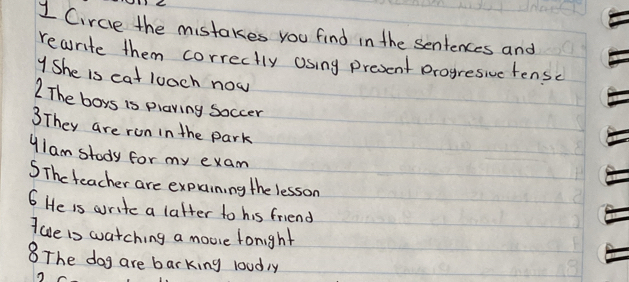 1 Circle the mistakes you find in the sentences and
rewrite them correctly using present progresive tense
1 She is eat luach now
2 The boys is playing Soccer
3 They are run in the park
4 I am study for my exam
5 The teacher are explaining the lesson
6 He is write a latter to his friend
7 we is watching a movie tonight
8 The dog are barking loudly